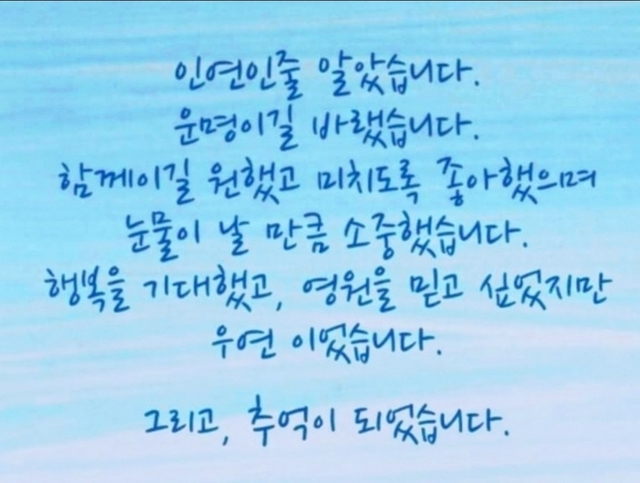 인연인줄 알았습니다.
운명이길 바랬습니다.
함께이길 원했고 미치도록 좋아했으며
눈물이 날 만큼 소중했습니다.
행복을 기대했고, 영원을 믿고 싶었지만
우연 이었습니다.
그리고, 추억이 되었습니다.